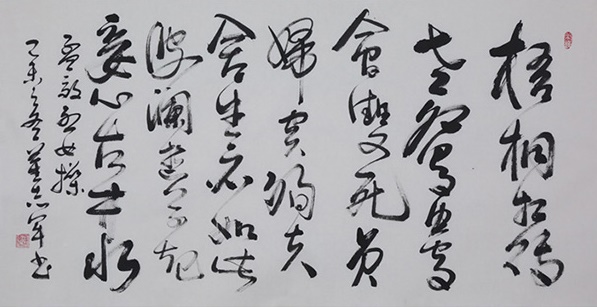 梧桐相待
老鴛鴦
會雙死貞
婦貴殉夫
舍生亦如此
波瀾誓不起
妾心古井水
孟郊烈女操
乙未之冬志軍書